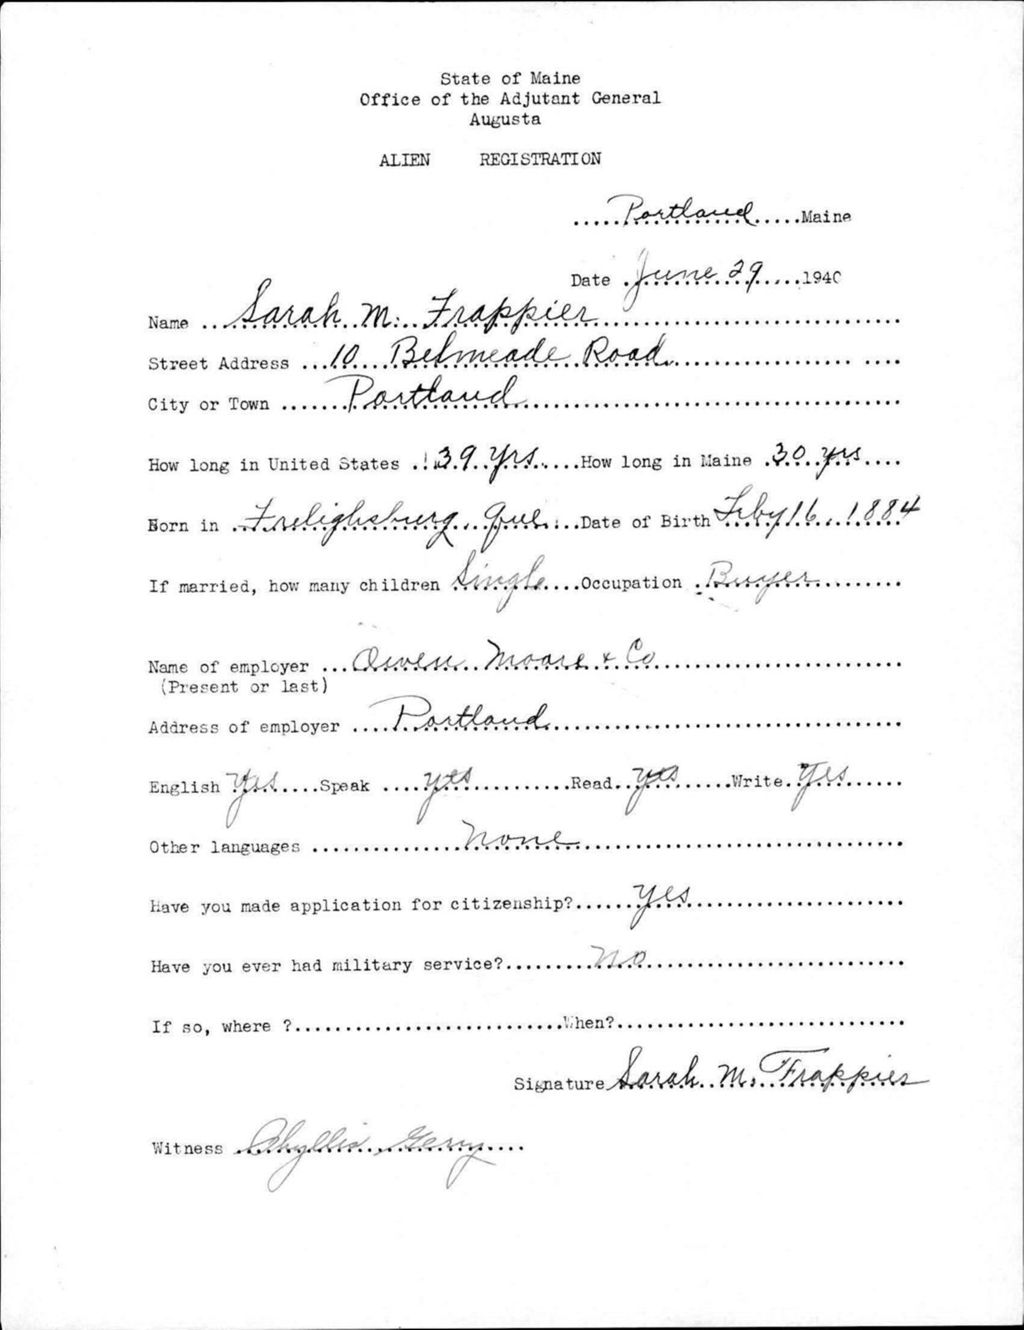 State of Maine
Office of the Adjutant General
Augusta
ALIEN REGISTRATION
.....Portland.....Maine
Date .June 29.....1940
Name ...Sarah M. Frappier..............................
Street Address ...10...Belmeade Road......................
City or Town .......Portland..............................
How long in United States ..39 Yrs.....How long in Maine .30 yrs....
Born in .Frelighsburg, Que....Date of Birth Feby 16, 1884
If married, how many children Single....Occupation .Buyer.........
Name of employer ...Owen Moore & Co..............................
(Present or last)
Address of employer ....Portland..............................
English Yes.....Speak ....yes............Read..yes.......Write.Yes.......
Other languages ..............none..............................
Have you made application for citizenship?......yes......................
Have you ever had military service?.........no..............................
If so, where ?..........................When?.............................
Signature Sarah M. Frappier
Witness Phyllis Gerry....